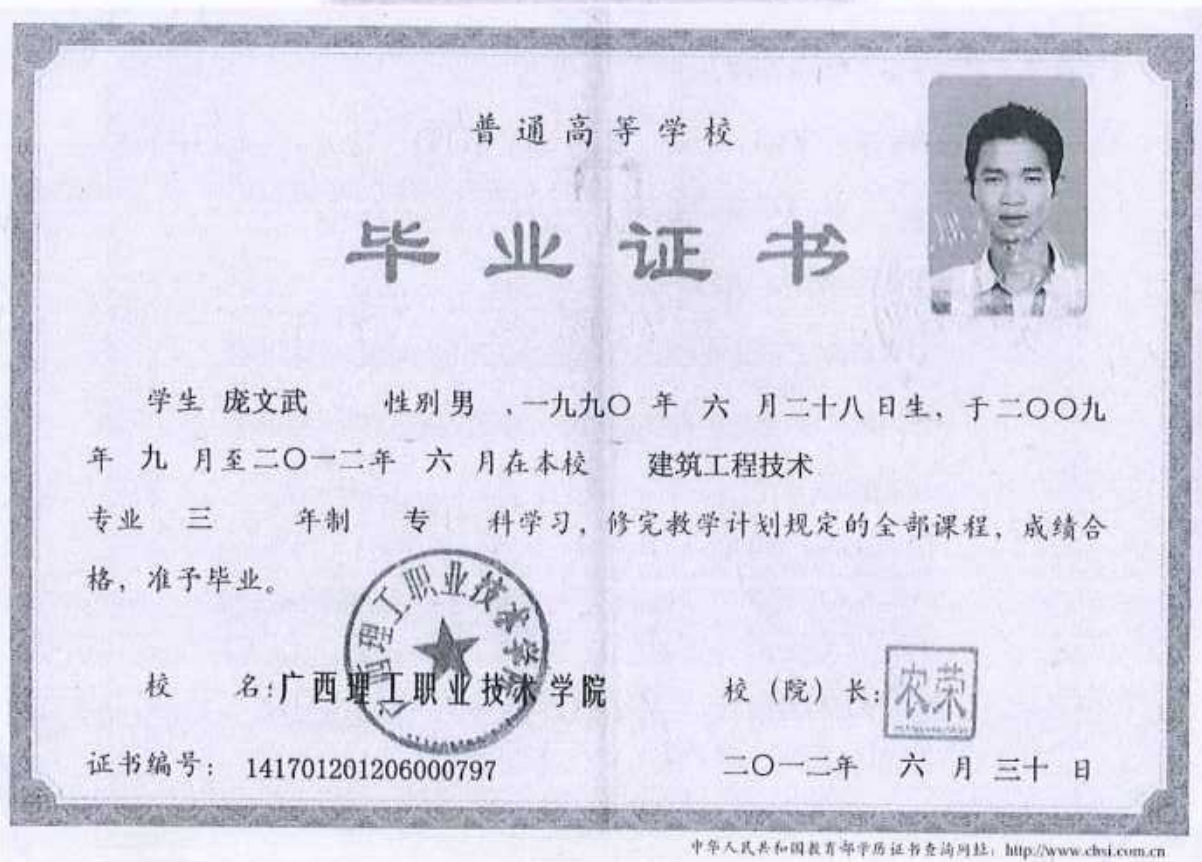 普通高等学校
毕业证书
学生 庞文武 性别 男 、一九九〇 年 六 月二十八日生、于二〇〇九
年 九 月至二〇一二年 六 月在本校 建筑工程技术
专业 三 年制 专 科学习,修完教学计划规定的全部课程,成绩合
格,准予毕业。
广西理工职业技术学院
校 名:广西理工职业技术学院 校(院)长:
农荣
证书编号: 141701201206000797 二〇一二年 六 月 三十 日
中华人民共和国教育部学历证书查询网址: http://www.chsi.com.cn